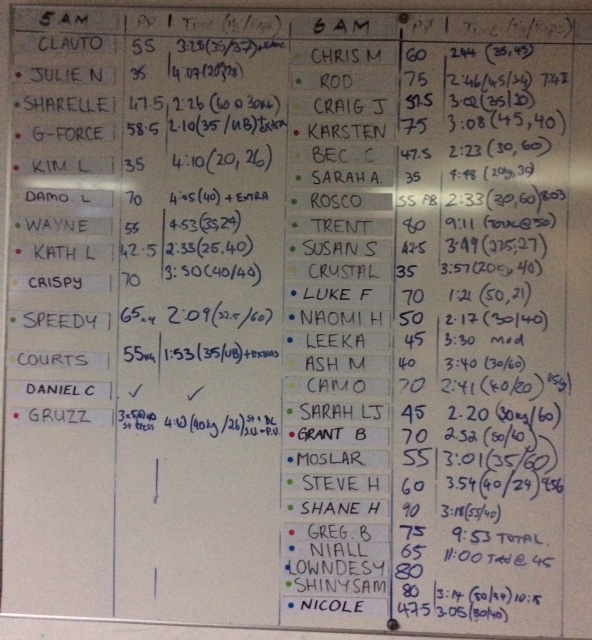 5 AM PP Time (Kg/Reps)
CLAUTO 55 3:28 (35/37)
JULIE N 35 4:07
SHARELLE 47.5 2:26 (60 @ 30kg)
G-FORCE 58.5 2:10 (35/UB) + Extra
KIM L 35 4:10 (20, 26)
DAMO L 70 4:05 (40) + EXTRA
WAYNE 55 4:53 (35,29)
KATH L 42.5 2:33 (25,40)
CRISPY 70 3:50 (40/40)
SPEEDY 65kg 2:09 (32.5/60)
COURTS 55kg 1:53 (35/UB) + Extras
DANIEL C ✓ ✓
GRUZZ 4:10 (40kg/26)
6 AM PP Time (Kg/Reps)
CHRIS M 60 2:44 (35,45)
ROD 75 2:46 (45/34)
CRAIG J 57.5 3:02 (35/20)
KARSTEN 75 3:08 (45,40)
BEC. C 47.5 2:23 (30,60)
SARAH A. 35 4:48 (20kg,30)
ROSCO 55 PB 2:33 (30,60) 8:03
TRENT 80 9:11 (TOTAL @ 50)
SUSAN S 42.5 3:49 (27.5,27)
CRYSTAL 35 3:57 (20kg, 40)
LUKE F 70 1:21 (50,21)
NAOMI H 50 2:17 (30/40)
LEEKA 45 3:30 mod
ASH M 40 3:40 (30/60)
CAMO 70 2:41 (40/20)
SARAH LJ 45 2:20 (30kg/60)
GRANT B 70 2:52 (50/40)
MOSLAR 55 3:01 (35/60)
STEVE H 60 3:54 (40/29) 9:56
SHANE H 90 3:18 (55/40)
GREG. B 75 9:53 TOTAL.
NIALL 65 11:00 @ 45
LOWNDESY 80
SHINY SAM 80 3:14
NICOLE 47.5 3:05 (30/40)